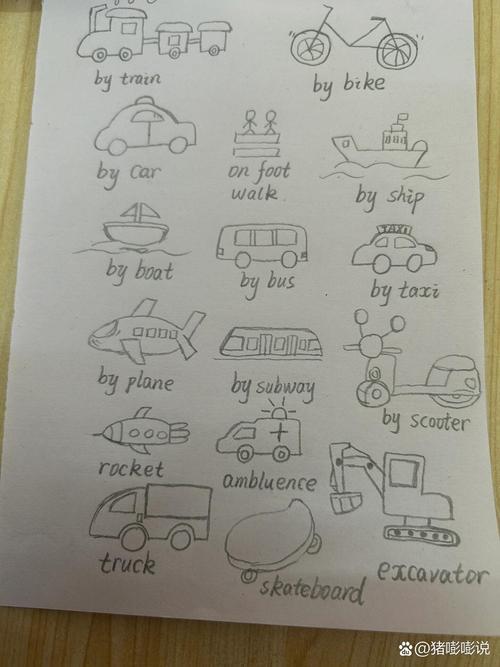 by train
by bike
by car
on foot
walk
by ship
by boat
by bus
TAXI
by taxi
by plane
by subway
by scooter
rocket
ambluence
truck
skateboard
excavator
@猪嘭嘭说